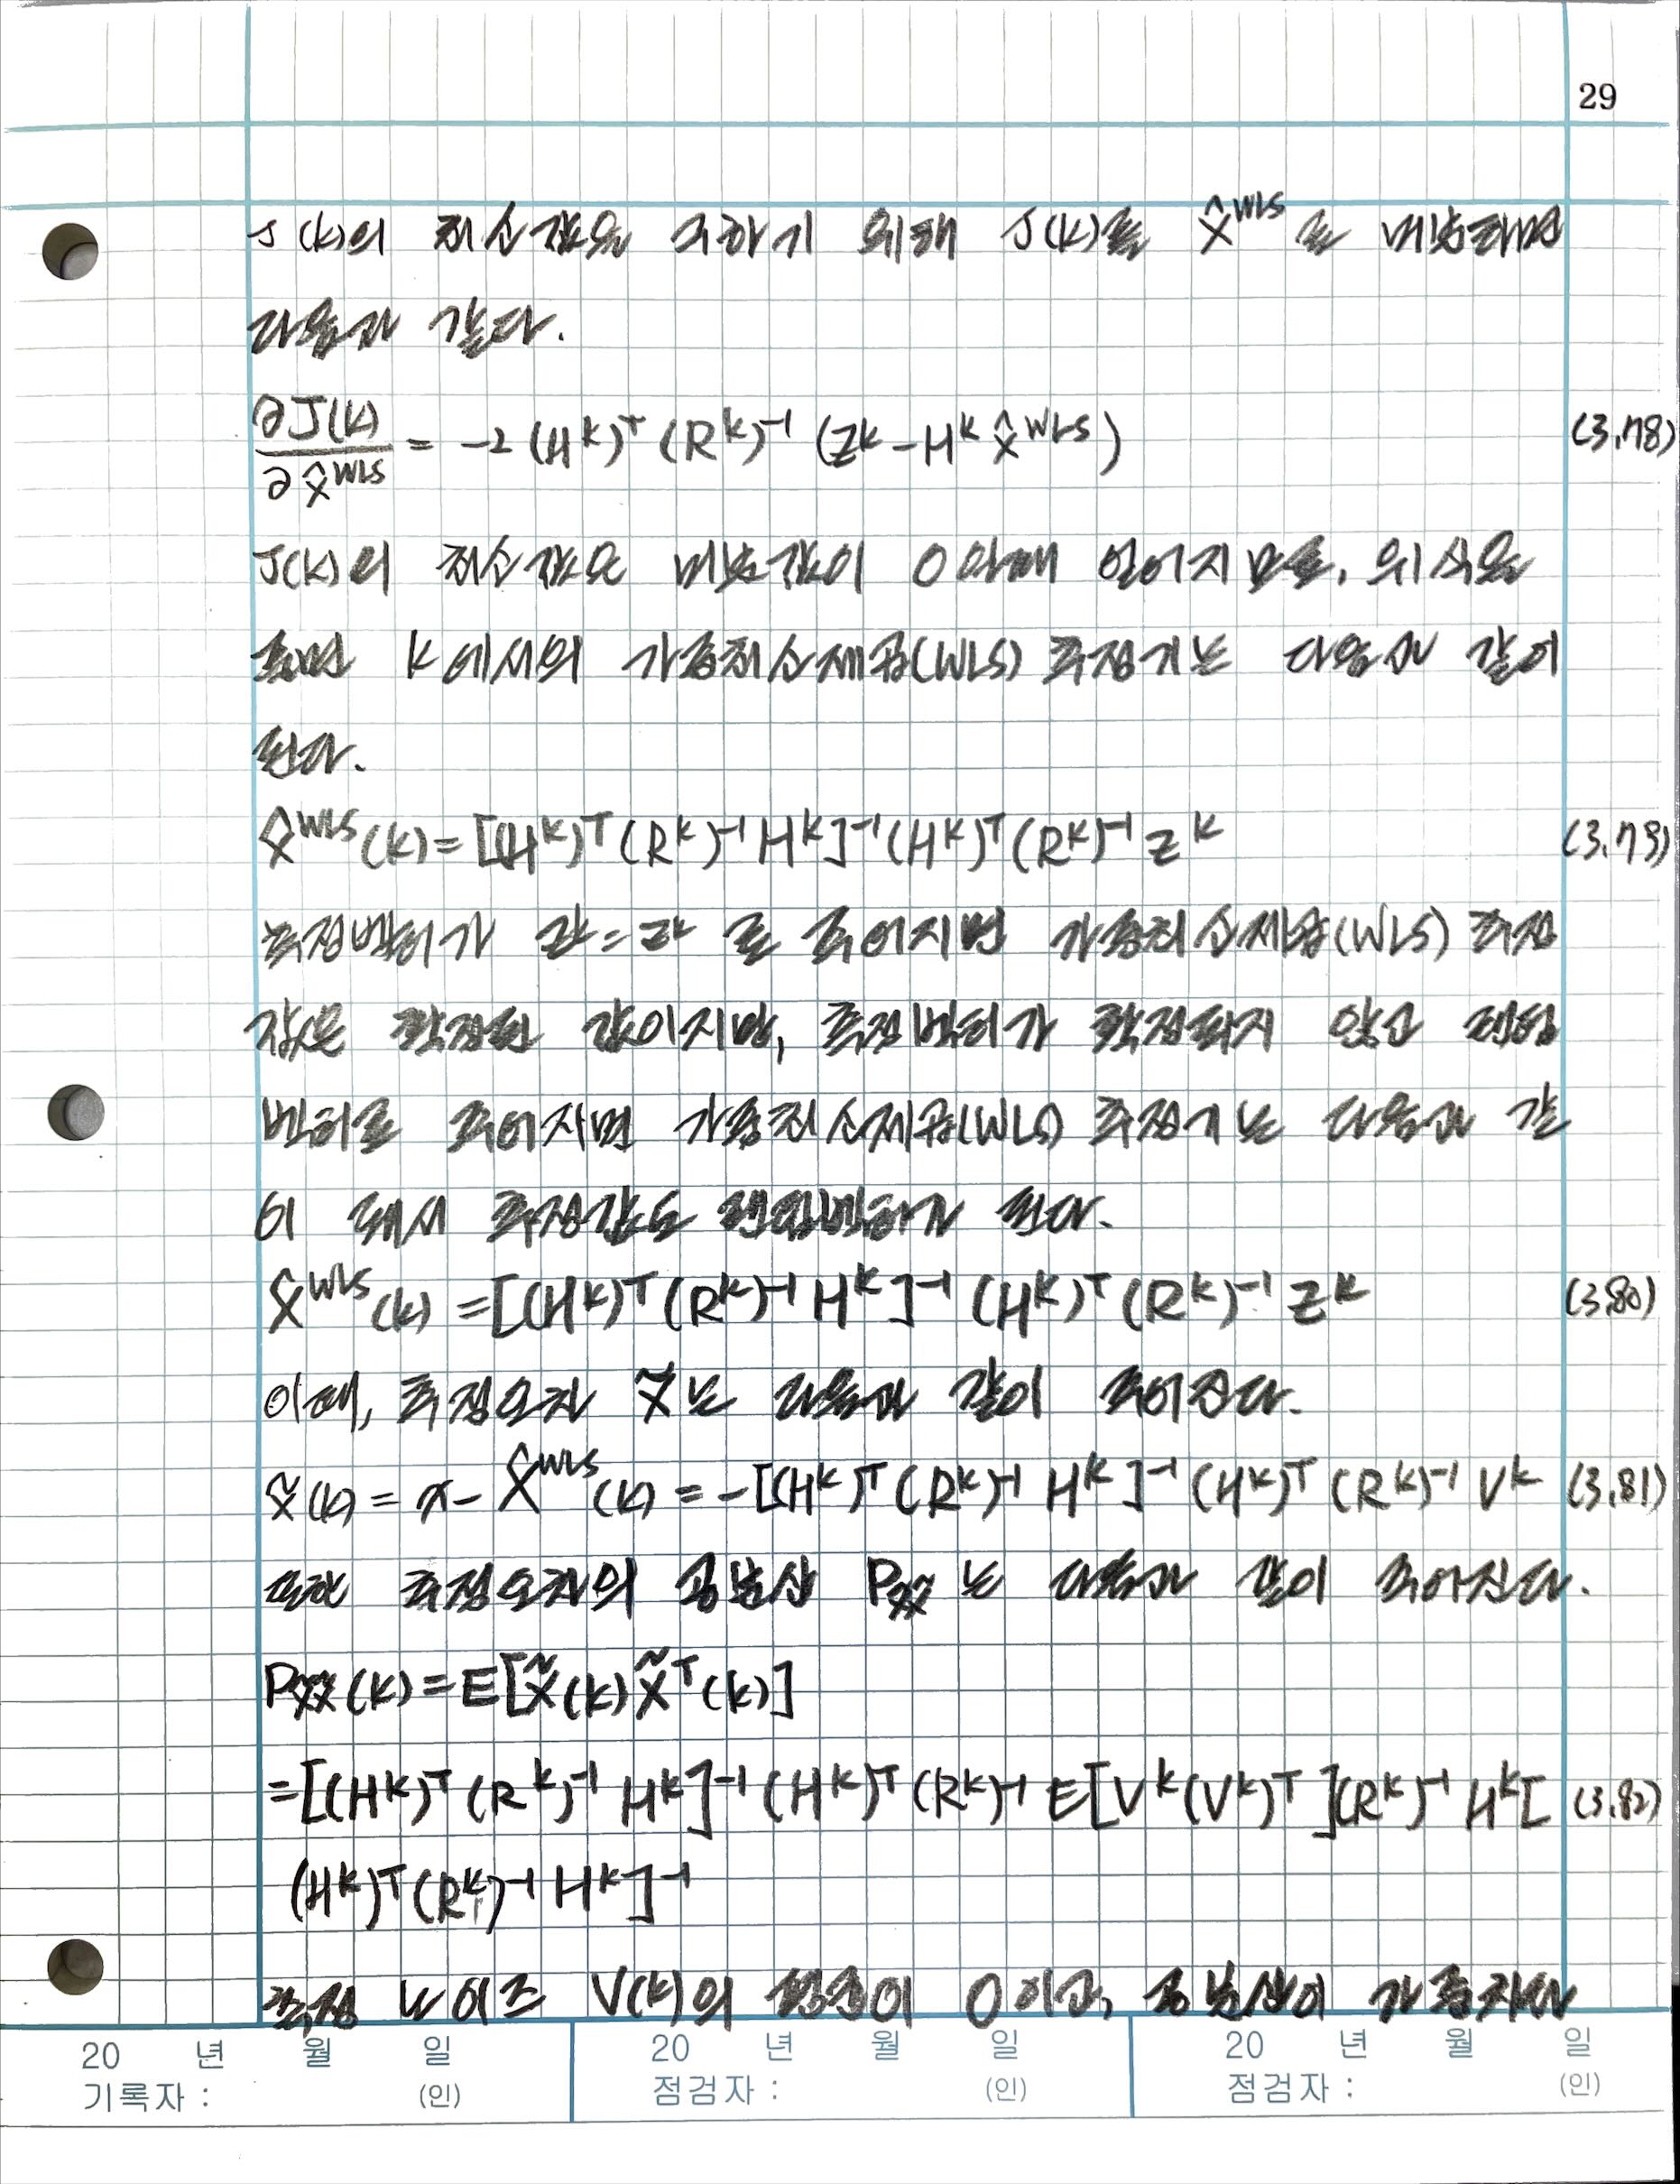 29
J(k)의 최소값을 구하기 위해 J(k)를 x̂^WLS로 미분하면
다음과 같다.
∂J(k)/∂x̂^WLS = -2(H^k)^T (R^k)^-1 (Z^k - H^k x̂^WLS) (3.78)
J(k)의 최소값은 미분값이 0일때 얻어지므로, 위 식을
풀면 k에서의 가중최소제곱(WLS) 추정기는 다음과 같이
된다.
x̂^WLS(k) = [(H^k)^T (R^k)^-1 H^k]^-1 (H^k)^T (R^k)^-1 z^k (3.79)
측정벡터가 z^k = z^k 로 주어지면 가중최소제곱(WLS) 추정
값은 확정된 값이지만, 측정벡터가 확정되지 않고 랜덤
벡터로 주어지면 가중최소제곱(WLS) 추정기는 다음과 같
이 돼서 추정값도 랜덤벡터가 된다.
X̂^WLS(k) = [(H^k)^T (R^k)^-1 H^k]^-1 (H^k)^T (R^k)^-1 Z^k (3.80)
이때, 추정오차 x̃는 다음과 같이 주어진다.
x̃(k) = x - X̂^WLS(k) = -[(H^k)^T (R^k)^-1 H^k]^-1 (H^k)^T (R^k)^-1 V^k (3.81)
또한 추정오차의 공분산 Px̃x̃ 는 다음과 같이 주어진다.
Px̃x̃(k) = E[x̃(k) x̃^T(k)]
= [(H^k)^T (R^k)^-1 H^k]^-1 (H^k)^T (R^k)^-1 E[V^k (V^k)^T] (R^k)^-1 H^k [ (3.82)
(H^k)^T (R^k)^-1 H^k]^-1
측정 노이즈 V(k)의 평균이 0이고, 공분산이 가중치와
20 년 월 일 20 년 월 일 20 년 월 일
기록자 : (인) 점검자 : (인) 점검자 : (인)